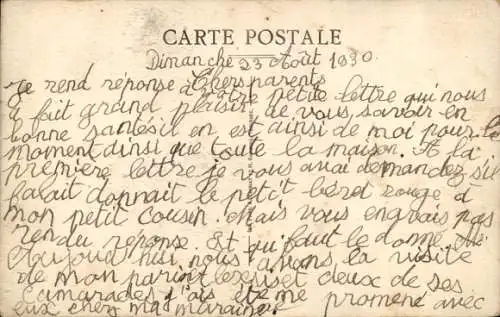 CARTE POSTALE
Dimanche 23 Août 1930.
Chers parents
Je rend réponse à votre petite lettre qui nous
a fait grand plaisir de vous savoir en
bonne santé s'il en est ainsi de moi pour le
moment dinsi que toute la maison. A la
première lettre je vous avai demandez s'il
falait donnait le petit béret rouge à
mon petit cousin. Mais vous en avais pas
rendu reponse. Et qui faut le donné
Aujourd hui nous avons la visite
de mon parin et deux de ses
camarades j'ais été me promené avec
eux chez ma maraine